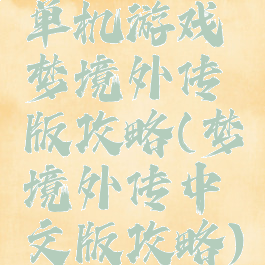 单机游戏
梦境外传
版攻略(梦
境外传中
文版攻略)